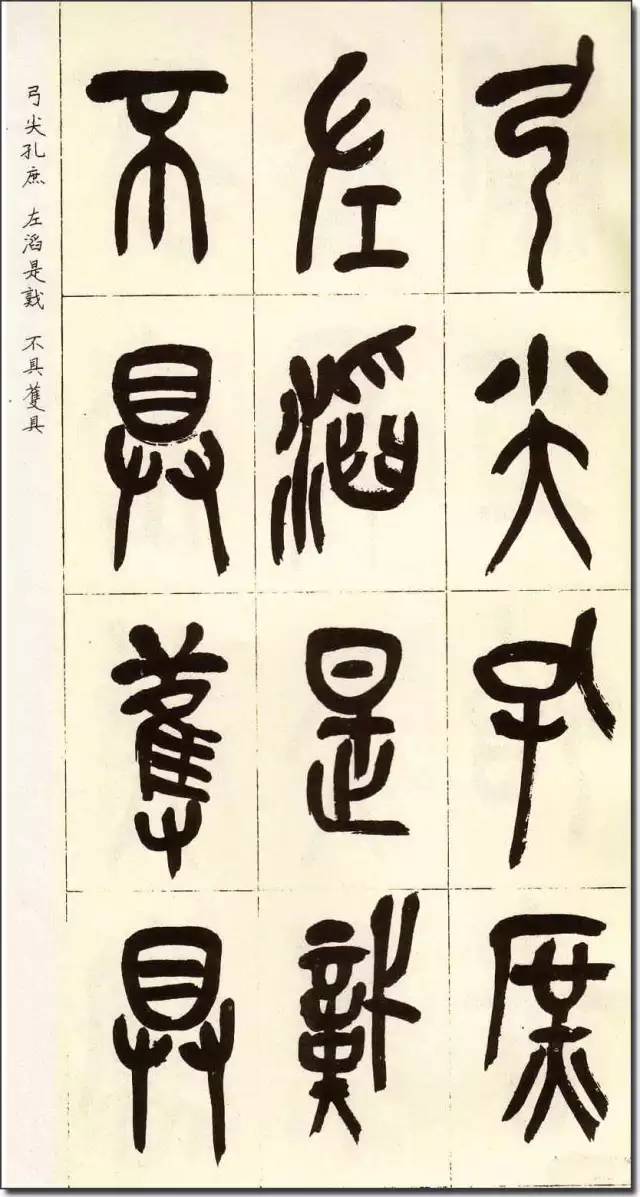 弓尖孔庶
左滔是戜
不具蒦具
弓尖孔庶 左滔是戜 不具蒦具